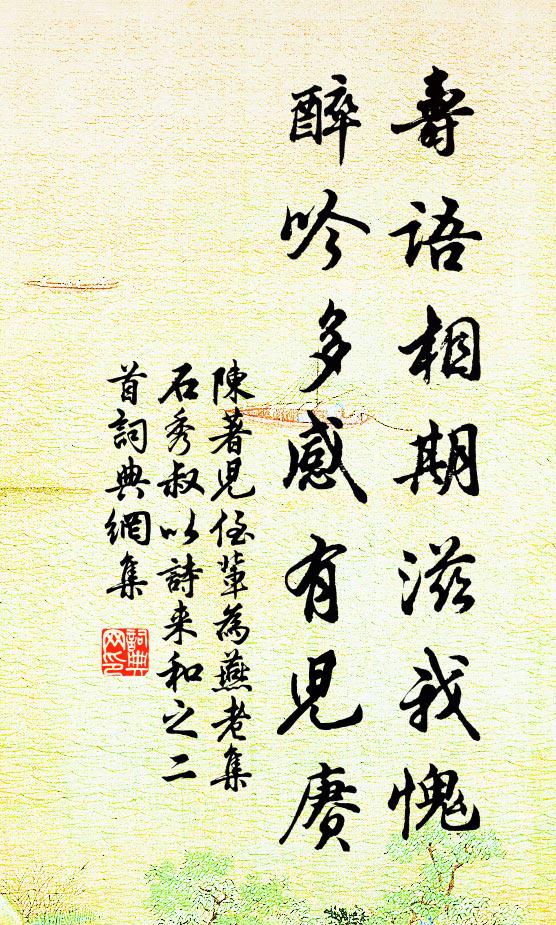 壽語相期滋我愧
醉吟多感有兒賡
陳著兒侄輩為燕老集
石秀叔以詩来和之二
首詞典網集
詞典
网印